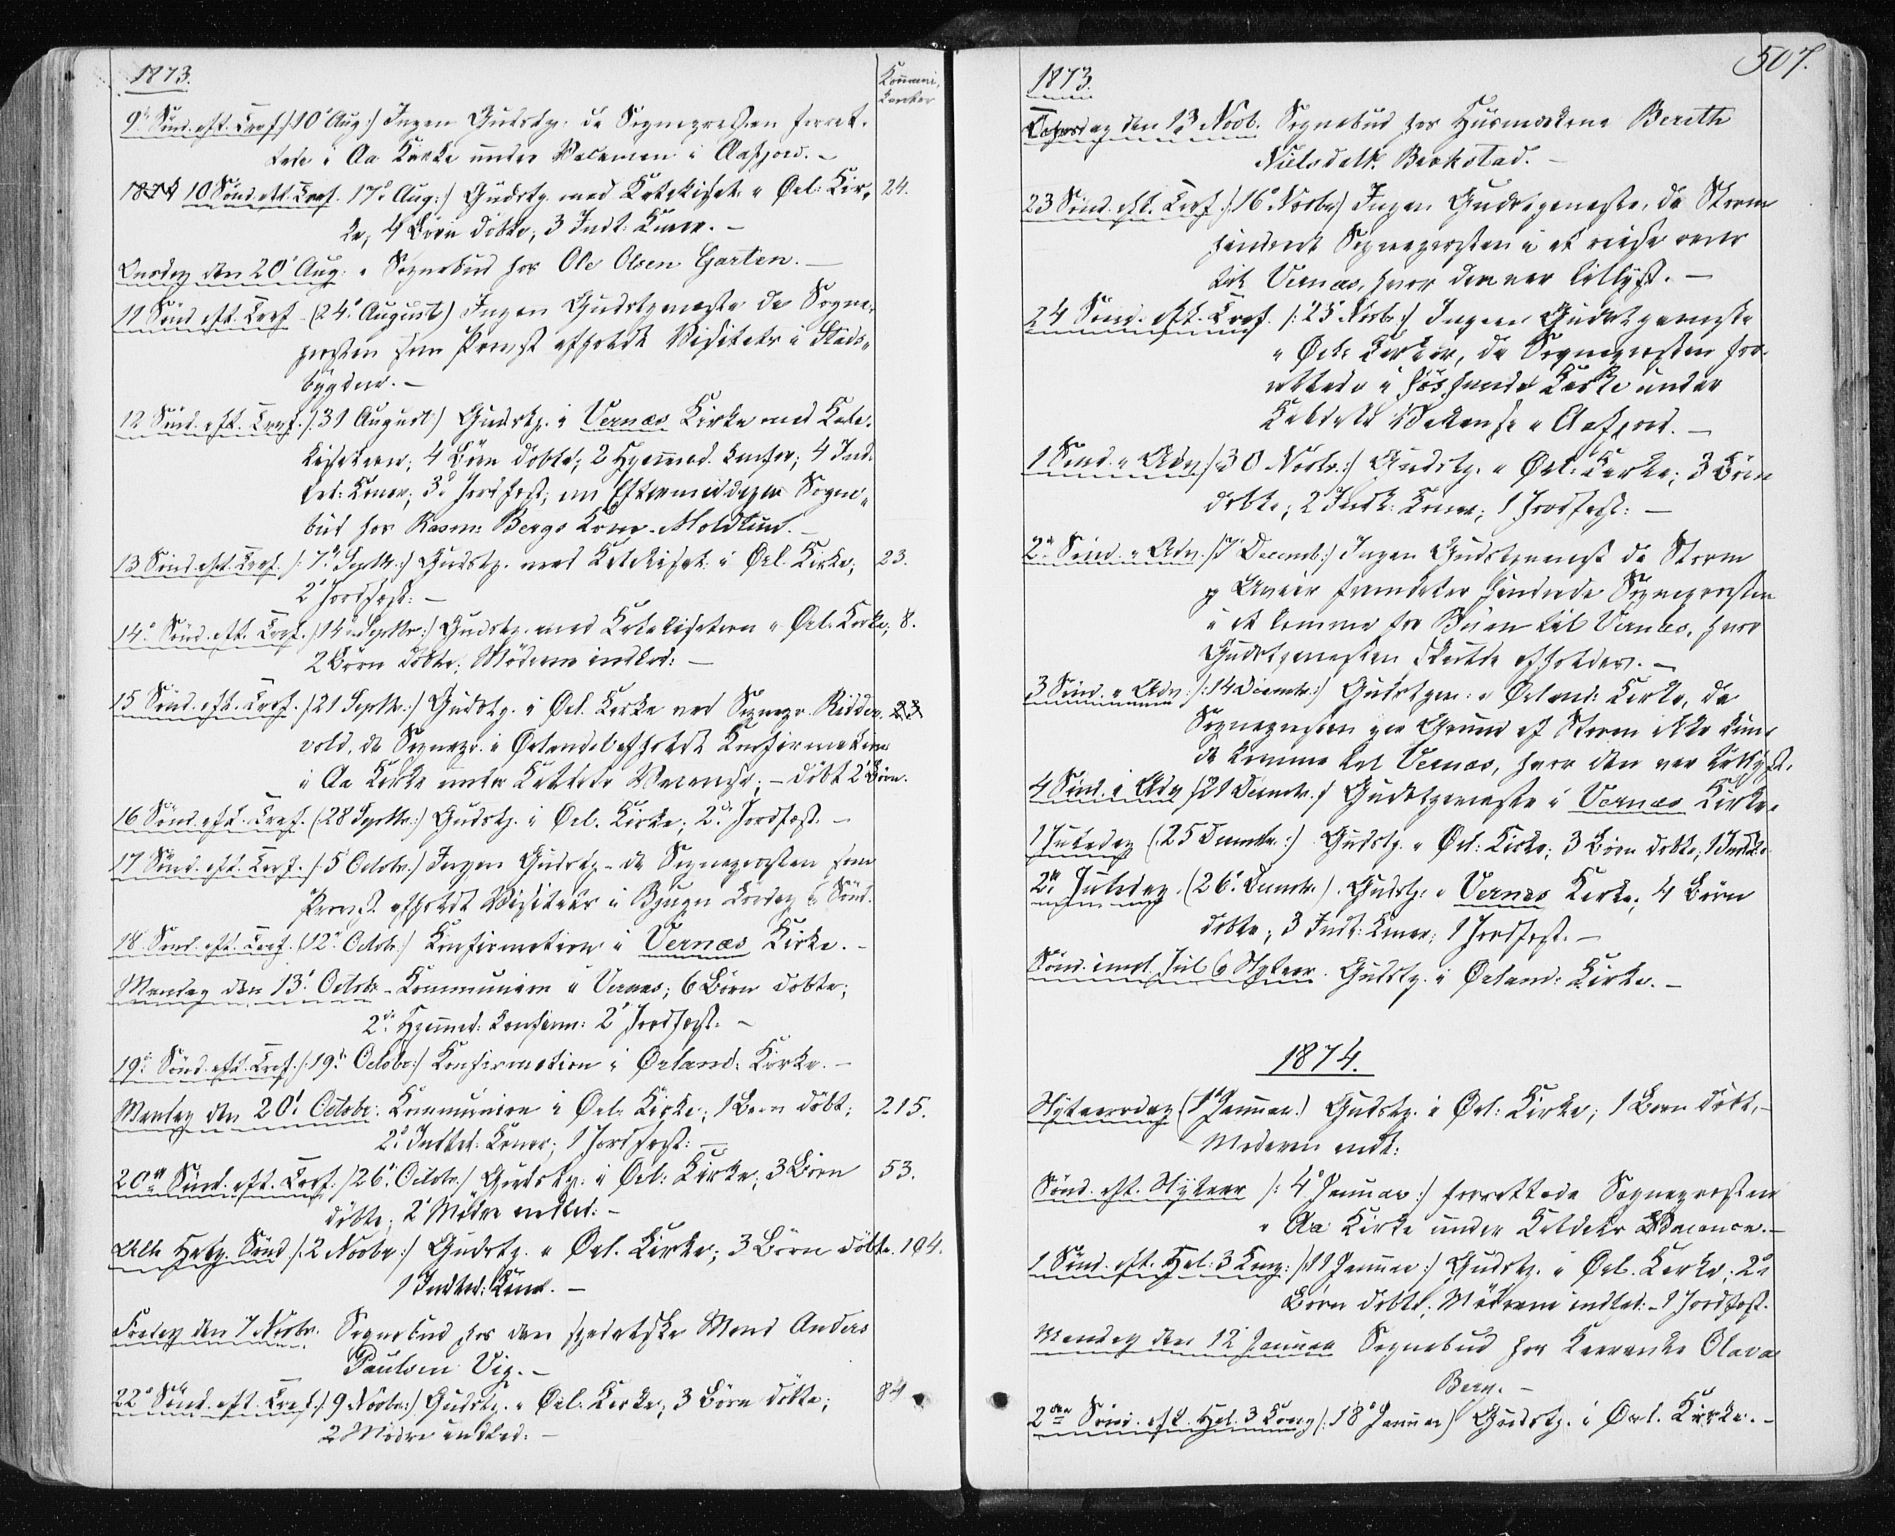 1873.
Kommuni-
kanter
9' Sönd. eft. Tref. /:10' Aug:/ Ingen Gudstj. da Sognepresten forret-
tede i Aa Kirke under Vacancen i Aafjord. -
10 Sönd. eft. Tref. 17' Aug:/ Gudstj. med Katekisat. i Örl: Kir- 24.
ke, 4 Börn döbte, 3 Indl: Koner. -
Onsdag den 20' Aug: Sognebud hos Ole Olsen Garten. -
11 Sönd. eft. Tref. (24' August) Ingen Gudstjeneste da Sogne-
presten som Provst afholdt Visitats i Stads-
bygden. -
12 Sönd. eft. Tref. /:31 August:/ Gudstj. i Vernæs Kirke med Kate-
kisation; 4 Börn döbte; 2 Hjemmed. 4 Ind-
led: Koner; 3 Jordfæst; om Eftermiddagen Sogne-
bud hos Rasm: Bergs Kone Moldtun. -
13 Sönd. eft. Tref. /:7' Septbr:/ Gudstj. med Katekisat. i Örl. Kirke; 23.
2 Jordfæst: -
14' Sönd. eft. Tref. /:14 Septbr:/ Gudstj. med Katekisation i Örl. Kirke, 8.
2 Börn döbte; Mödrene indled: -
15 Sönd. eft. Tref. /:21 Septbr:/ Gudstj. i Örl. Kirke ved Sognepr. Ridder- 23
vold, da Sognepr. i Örlandet afholdt Konfirmation
i Aa Kirke under Vacance; - döbt 2 Börn.
16 Sönd. eft. Tref. (28 Septbr:) Gudstj. i Örl. Kirke; 2 Jordfæst. -
17 Sönd. eft. Tref. /:5 Octobr:/ Ingen Gudstj. da Sognepresten som
Provst afholdt Visitats i Bjugn Lördag & Sönd.
18 Sönd. eft. Tref. (12' Octobr:) Konfirmation i Vernæs Kirke. -
Mandag den 13' Octobr - Kommunion i Vernæs; 6 Börn döbte;
2 Hjemmed: 2 Jordfæst. -
19' Sönd. eft. Tref. /:19' Octobr:/ Konfirmation i Örland: Kirke. -
Mandag den 20' Octobr. Kommunion i Örl. Kirke; 1 Barn döbt; 215.
2 Indled: Koner; 1 Jordfæst: -
20de Sönd. eft. Tref. /26' Octobr:/ Gudstj. i Örl: Kirke; 3 Börn 53.
döbte; 2 Mödre indled: -
Alle Helg. Sönd /:2 Novbr:/ Gudstj. i Örl. Kirke; 3 Börn döbte. 104.
1 Indled: Kone. -
Fredag den 7 Novbr. Sognebud hos den spedalske Mand Anders
Paulsen Vig. -
22' Sönd. eft. Tref. /:9 Novbr:/ Gudstj. i Örl. Kirke; 3 Börn döbte; 84
2 Mödre indled: -
507.
1873.
Torsdag den 13 Novb. Sognebud hos Husmandskone Berethe
Nielsdatt. Berkstad. -
23 Sönd. eft. Tref. /:16' Novbr:/ Ingen Gudstjeneste, da Storm
hindrede Sognepresten i at reise over
til Vernæs, hvor den var tillyst. -
24 Sönd. eft. Tref. /:23 Novbr:/ Ingen Gudstjeneste
i Örl: Kirke, da Sognepresten for-
rettede i Kirke under
Vakanse i Aafjord. -
1 Sönd. i Adv. /:30 Novbr:/ Gudstj. i Örl: Kirke; 3 Börn
döbte; 2 Indl: Koner; 1 Jordfæst: -
2n Sönd. i Adv. /:7 Decemb:/ Ingen Gudstjeneste da Storm
og Uveir fremdeles hindrede Sognepresten
i at komme fra Byen til Vernæs, hvor
Gudstjenesten skulde afholdes. -
3 Sönd. i Adv: /:14 Decembr:/ Gudstjen: i Örland: Kirke, da
Sognepresten paa Grund af Storm ikke kun-
de komme til Vernæs, hvor den var tillyst.
4 Sönd. i Adv /:21 Decembr:/ Gudstjeneste i Vernæs Kirke.
1 Juledag (:25 Decembr:) Gudstj. i Örl: Kirke; 3 Börn döbte, 1 Indled:
2n Juledag (26' Decembr:). Gudstj. i Vernæs Kirke; 4 Börn
döbte; 3 Indl: Koner; 1 Jordfæst. -
Sönd. iml. Jul & Nytaar. Gudstj. i Örland: Kirke. -
1874.
Nytaarsdag (1' Januar.) Gudstj. i Örl: Kirke; 1 Barn döbt, -
Moderen indl:
Sönd. eft. Nytaar /:4' Januar:/ forrettede Sognepresten
i Aa Kirke under Vacance. -
1 Sönd. eft. Hel: 3 Kong: /:11 Januar:/ Gudstj. i Örl. Kirke; 2
Börn döbte; Mödrene indled: - 1 Jordfæst.
Mandag den 12' Januar Sognebud hos Olava
Berg. -
2den Sönd. eft. Hel. 3 Kong /:18' Januar/ Gudstj. i Örl. Kirke. -